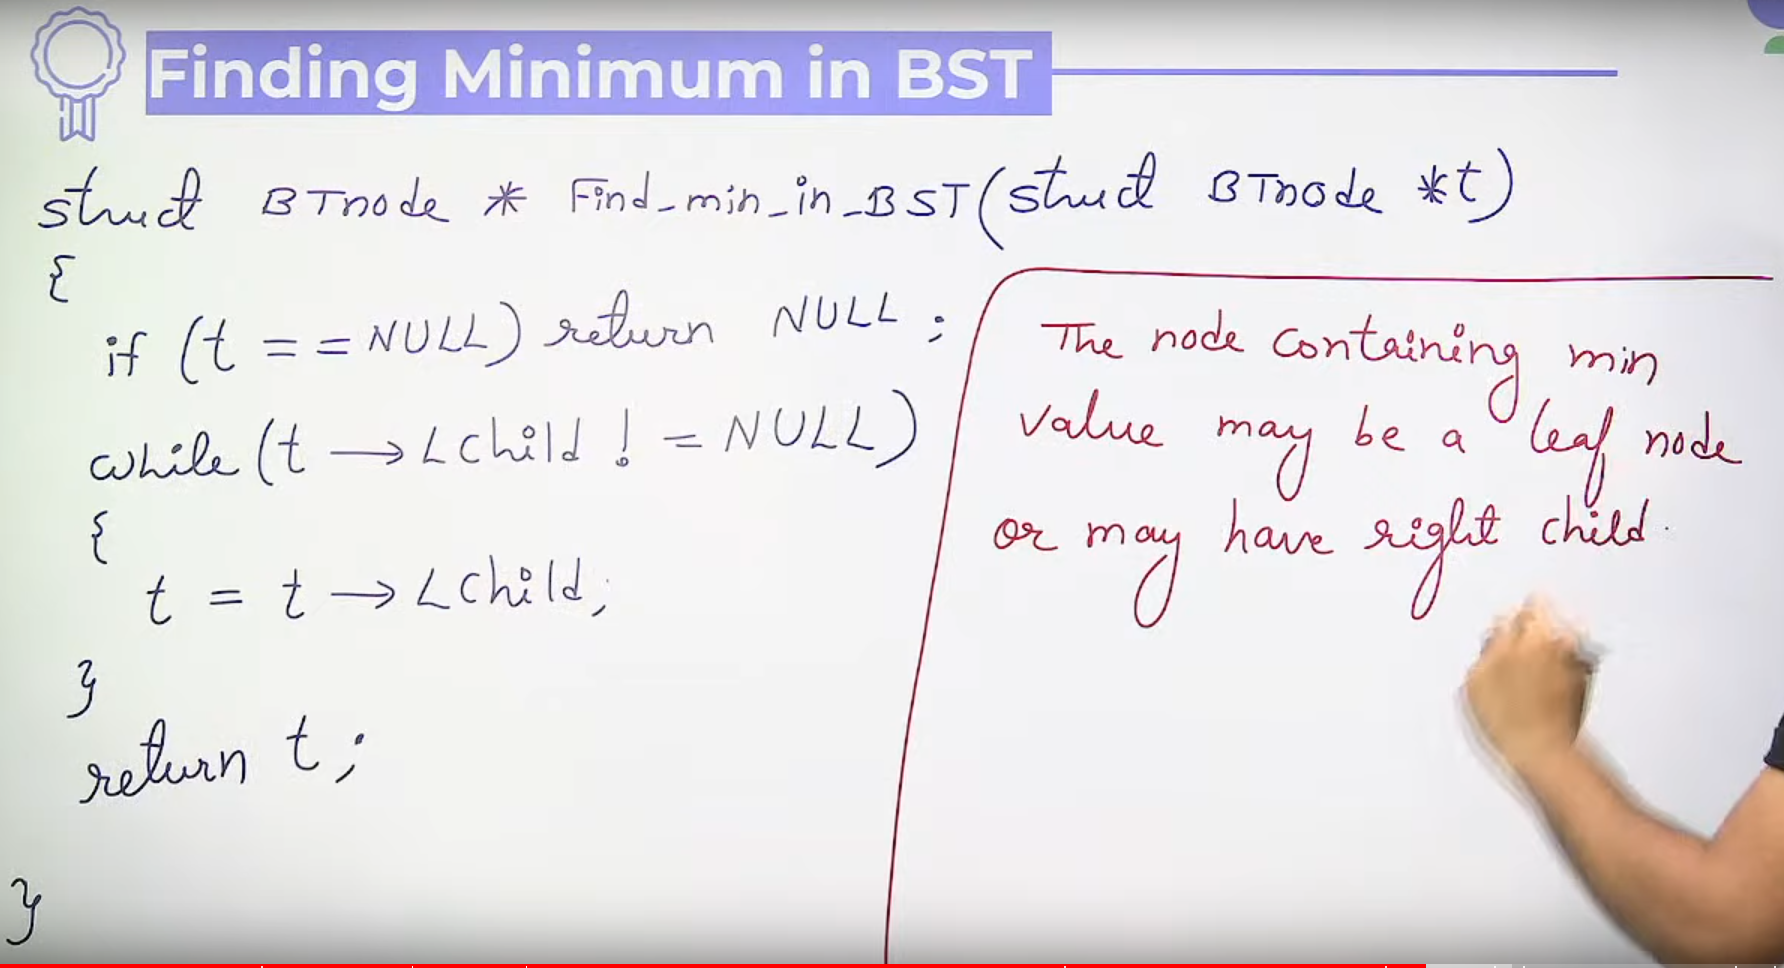 Finding Minimum in BST
struct BTnode * Find_min_in_BST(struct BTnode *t)
{
if (t == NULL) return NULL ;
while (t → LChild ! = NULL)
{
t = t → LChild;
}
return t ;
}
The node containing min
value may be a leaf node
or may have right child.